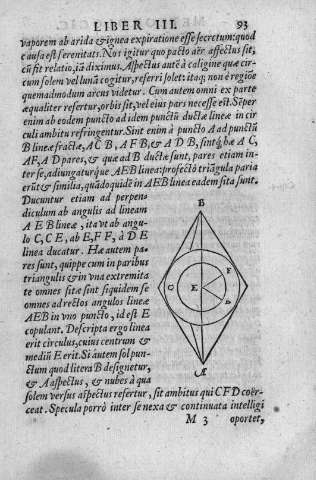 LIBER III. 93
vaporem ab arida & ignea expiratione esse secretum: quod
causa est serenitatis. Nos igitur quo pacto aër affectus sit,
cũ fit relatio, iã diximus. Aspectus autẽ à caligine quæ cir-
cum solem vel lunã cogitur, referri solet: itaq; non è regiõe
quemadmodum arcus videtur. Cum autem omni ex parte
æqualiter refertur, orbis sit, vel eius pars necesse est. Sẽper
enim ab eodem puncto ad idem punctũ ductæ lineæ in cir
culi ambitu refringentur. Sint enim à puncto A ad punctũ
B lineæ fractæ, A C B, A F B, & A D B, sintq́; hæ A C,
A F, A D pares, & quæ ad B ductæ sunt, pares etiam in-
ter se, adiungaturque A E B linea: profectò triãgula paria
erũt & similia, quãdoquidẽ in A E B linea eadem sita sunt.
Ducuntur etiam ad perpen-
diculum ab angulis ad lineam
A E B lineæ, ita vt ab angu-
lo C, C E, ab F, F E, à D E
linea ducatur. Hæ autem pa-
res sunt, quippe cum in paribus
triangulis & in vna extremita
te omnes sitæ sint siquidem se
omnes ad rectos angulos lineæ
A E B in vno puncto, id est E
copulant. Descripta ergo linea
erit circulus, cuius centrum &
mediũ E erit. Si autem sol pun-
ctum quod litera B designetur,
& A aspectus, & nubes à qua
solem versus aspectus refertur, sit ambitus qui C F D coër-
ceat. Specula porrò inter se nexa & continuata intelligi
M 3 oportet,
B
C
E
F
A